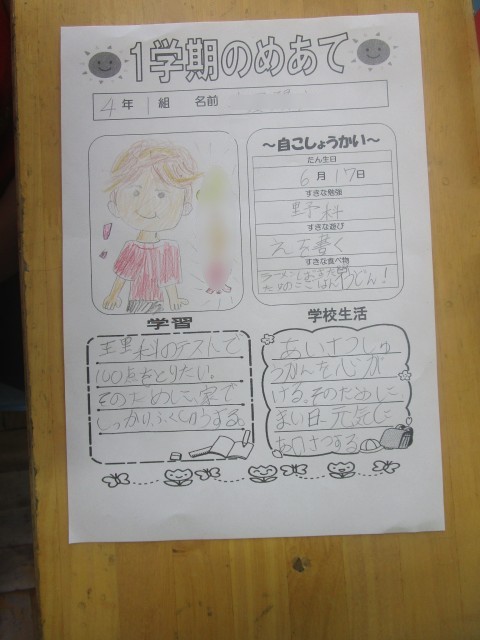 1学期のめあて
4年 1組 名前
～自こしょうかい～
たん生日
6月17日
すきな勉強
野科
すきな遊び
えを書く
すきな食べ物
たけのこごはん
学習
学校生活
理科のテストで
100点をとりたい。
そのために、家で
しっかりふくしゅうする。
あいさつしゅ
うかんを心が
ける。そのために、
まい日元気に
あいさつする